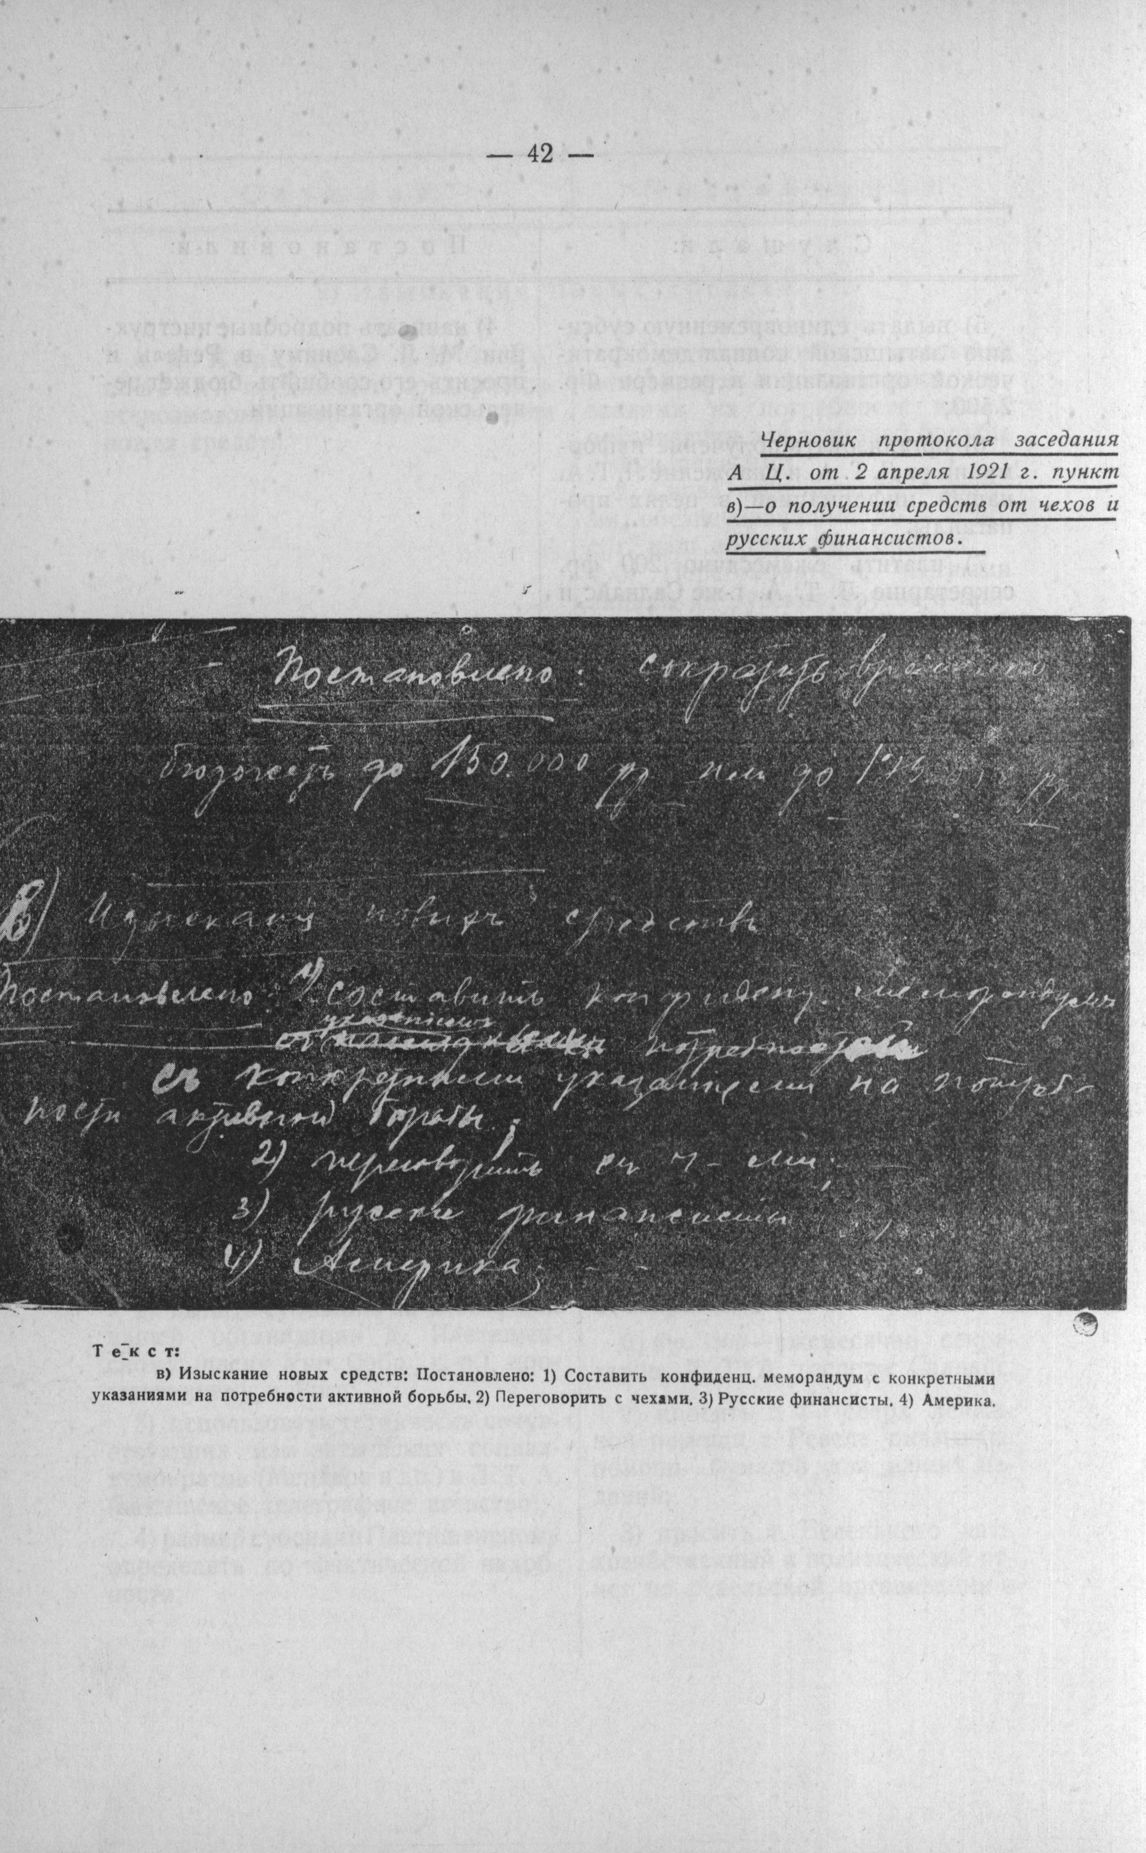 — 42 —
Черновик протокола заседания
А Ц. от 2 апреля 1921 г. пункт
в)—о получении средств от чехов и
русских финансистов.
Постановлено: сократить временно
бюджетъ до 150.000 фр или до 175 000 фр
в) Изыскание новыхъ средствъ
Постановлено: 1) составить конфиденц. меморандумъ
указаниемъ
потребностей
съ конкретными указаниями на потреб-
ности активной борьбы;
2) переговорить съ ч-ми;
3) русские финансисты;
4) Америка;
Текст:
в) Изыскание новых средств: Постановлено: 1) Составить конфиденц. меморандум с конкретными
указаниями на потребности активной борьбы. 2) Переговорить с чехами. 3) Русские финансисты. 4) Америка.